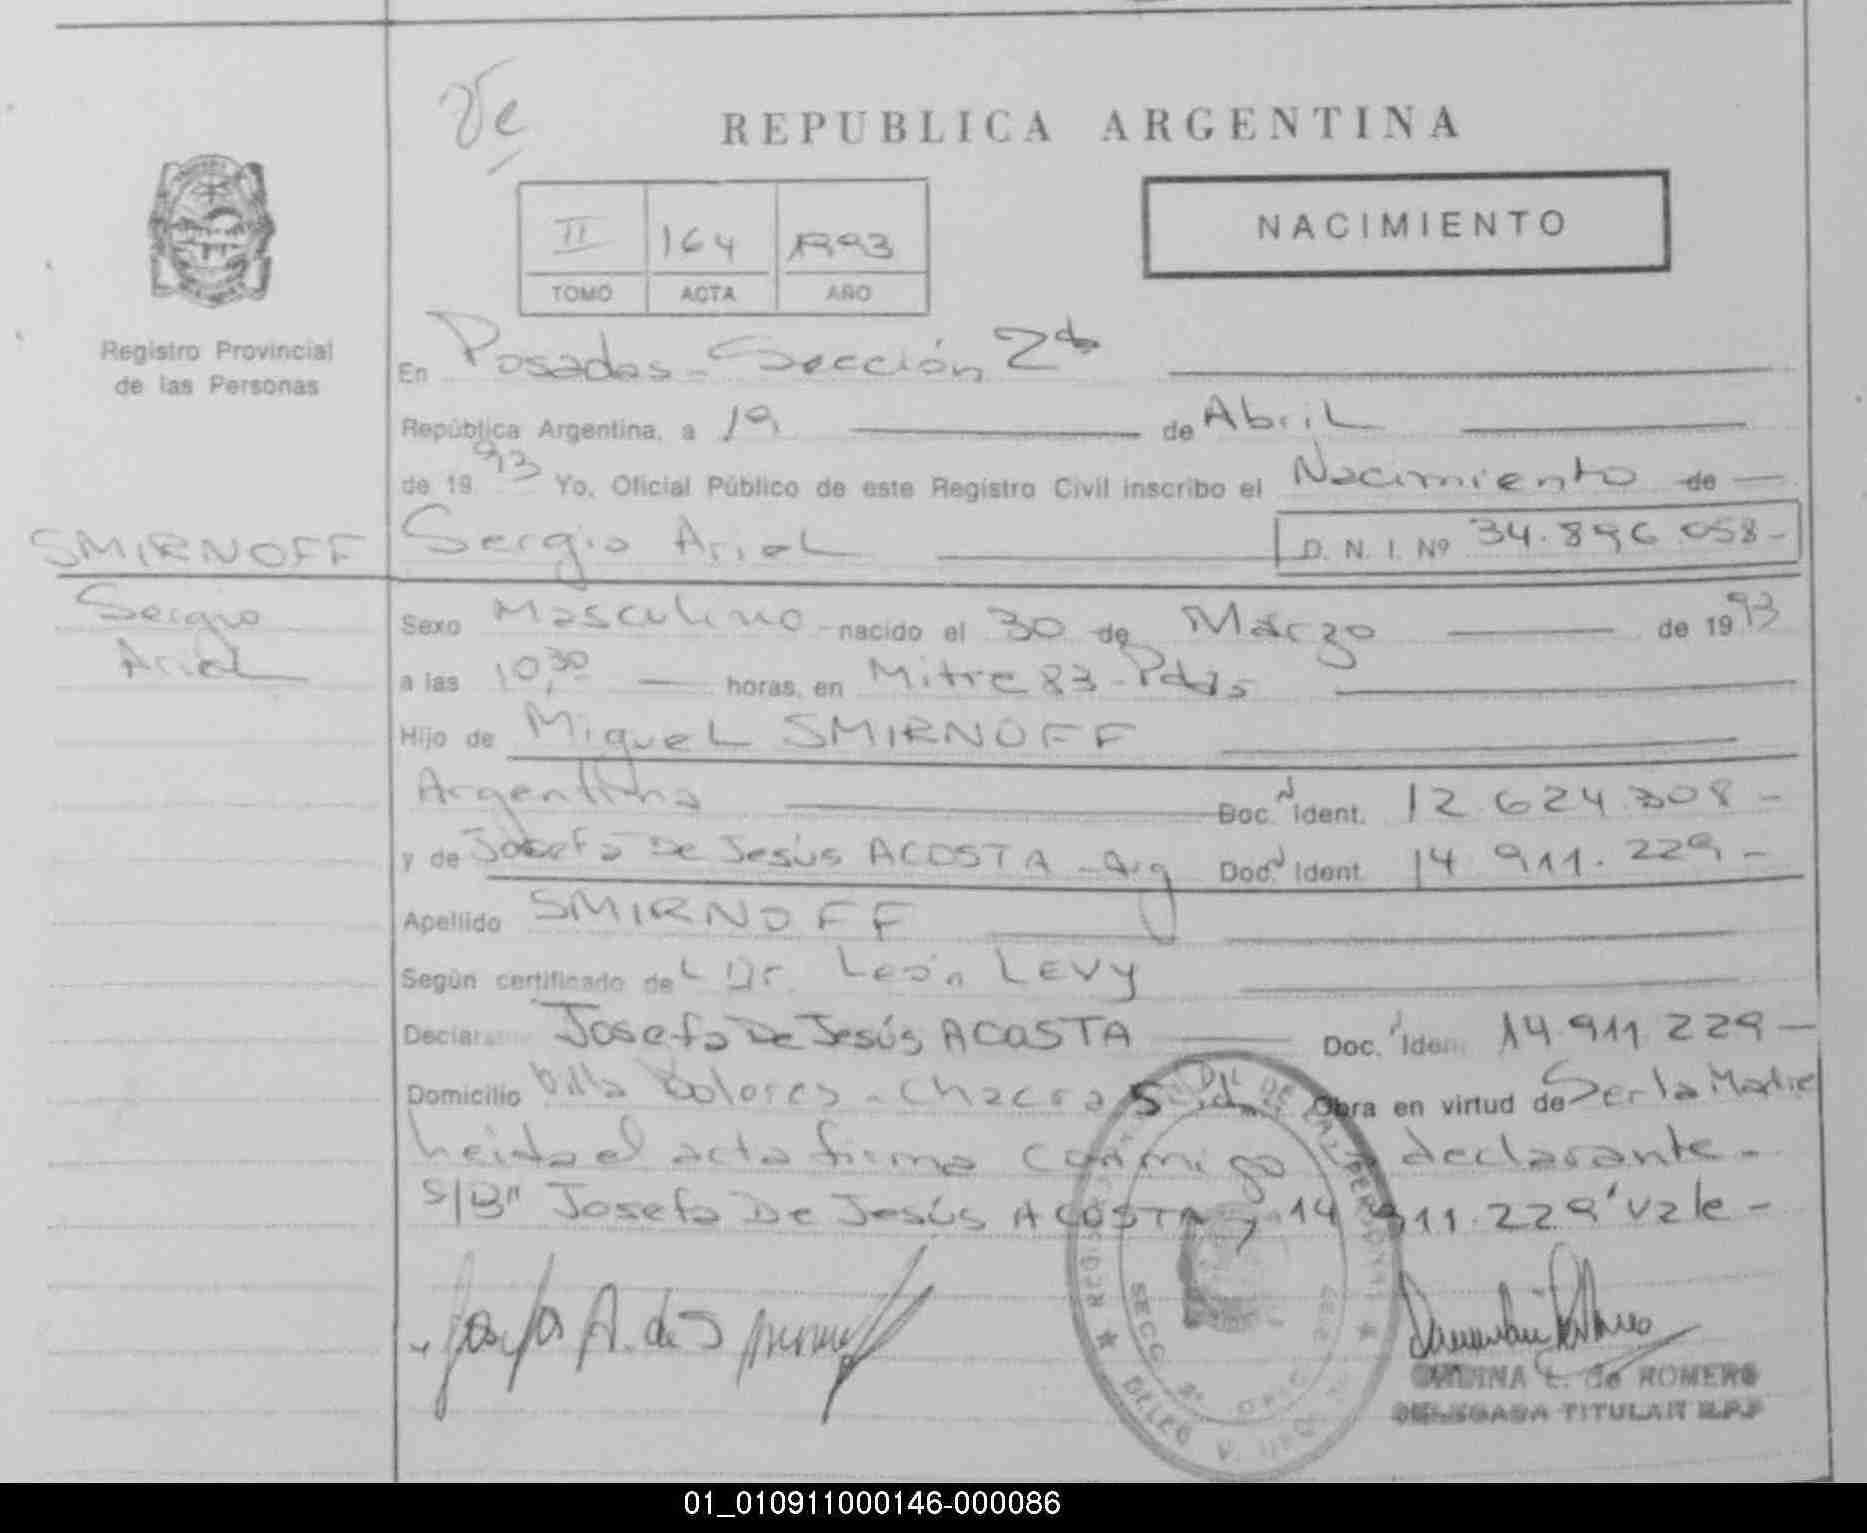 Ve
REPUBLICA ARGENTINA
NACIMIENTO
II 164 1993
TOMO ACTA AÑO
Registro Provincial
de las Personas
En Posadas - Sección 2da
República Argentina, a 19 de Abril
de 1993 Yo, Oficial Público de este Registro Civil inscribo el Nacimiento de
SMIRNOFF
Sergio
Ariel
Sergio Ariel D. N. I. Nº 34.896.058-
Sexo Masculino nacido el 30 de Marzo de 1993
a las 10,30 horas, en Mitre 83 - Pdas
Hijo de Miguel SMIRNOFF
Argentina Doc. Ident. 12.624.308-
y de Josefa De Jesús ACOSTA - Arg Doc. Ident. 14.911.229-
Apellido SMIRNOFF
Según certificado del Dr. León LEVY
Declarante Josefa De Jesús ACOSTA Doc. Iden. 14.911.229-
Domicilio Villa Dolores - Chacra 5 Obra en virtud de Ser la Madre
Leida el acta firma conmigo la declarante-
S/B" Josefa De Jesús ACOSTA, 14.911.229" Vale-
Josefa A. de Smirnoff
L. de ROMERO
DELEGADA TITULAR R.P.P
01_010911000146-000086